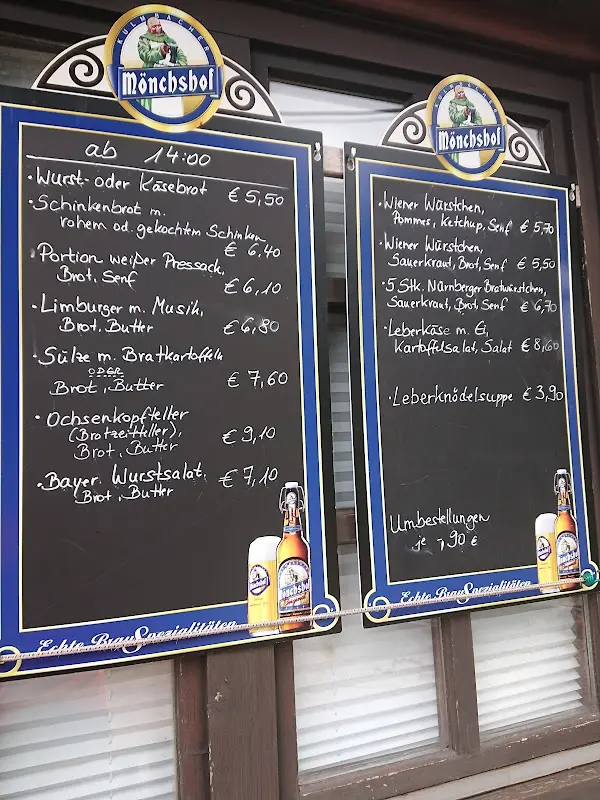 KULMBACHER
Mönchshof
ab 14:00
· Wurst- oder Käsebrot € 5,50
· Schinkenbrot m.
rohem od. gekochtem Schinken
€ 6,40
· Portion weißer Pressack,
Brot, Senf € 6,10
· Limburger m. Musik,
Brot, Butter € 6,80
· Sülze m. Bratkartoffeln
ODER
Brot, Butter € 7,60
· Ochsenkopfteller
(Brotzeitteller), € 9,10
Brot, Butter
· Bayer. Wurstsalat, € 7,10
Brot, Butter
Mönchshof
Echte BrauSpezialitäten
KULMBACHER
Mönchshof
· Wiener Würstchen,
Pommes, Ketchup, Senf € 5,70
· Wiener Würstchen,
Sauerkraut, Brot, Senf € 5,50
· 5 Stk. Nürnberger Bratwürstchen,
Sauerkraut, Brot, Senf € 6,70
· Leberkäse m. Ei,
Kartoffelsalat, Salat € 8,60
· Leberknödelsuppe € 3,90
Umbestellungen
je -,90 €
Mönchshof
Echte BrauSpezialitäten